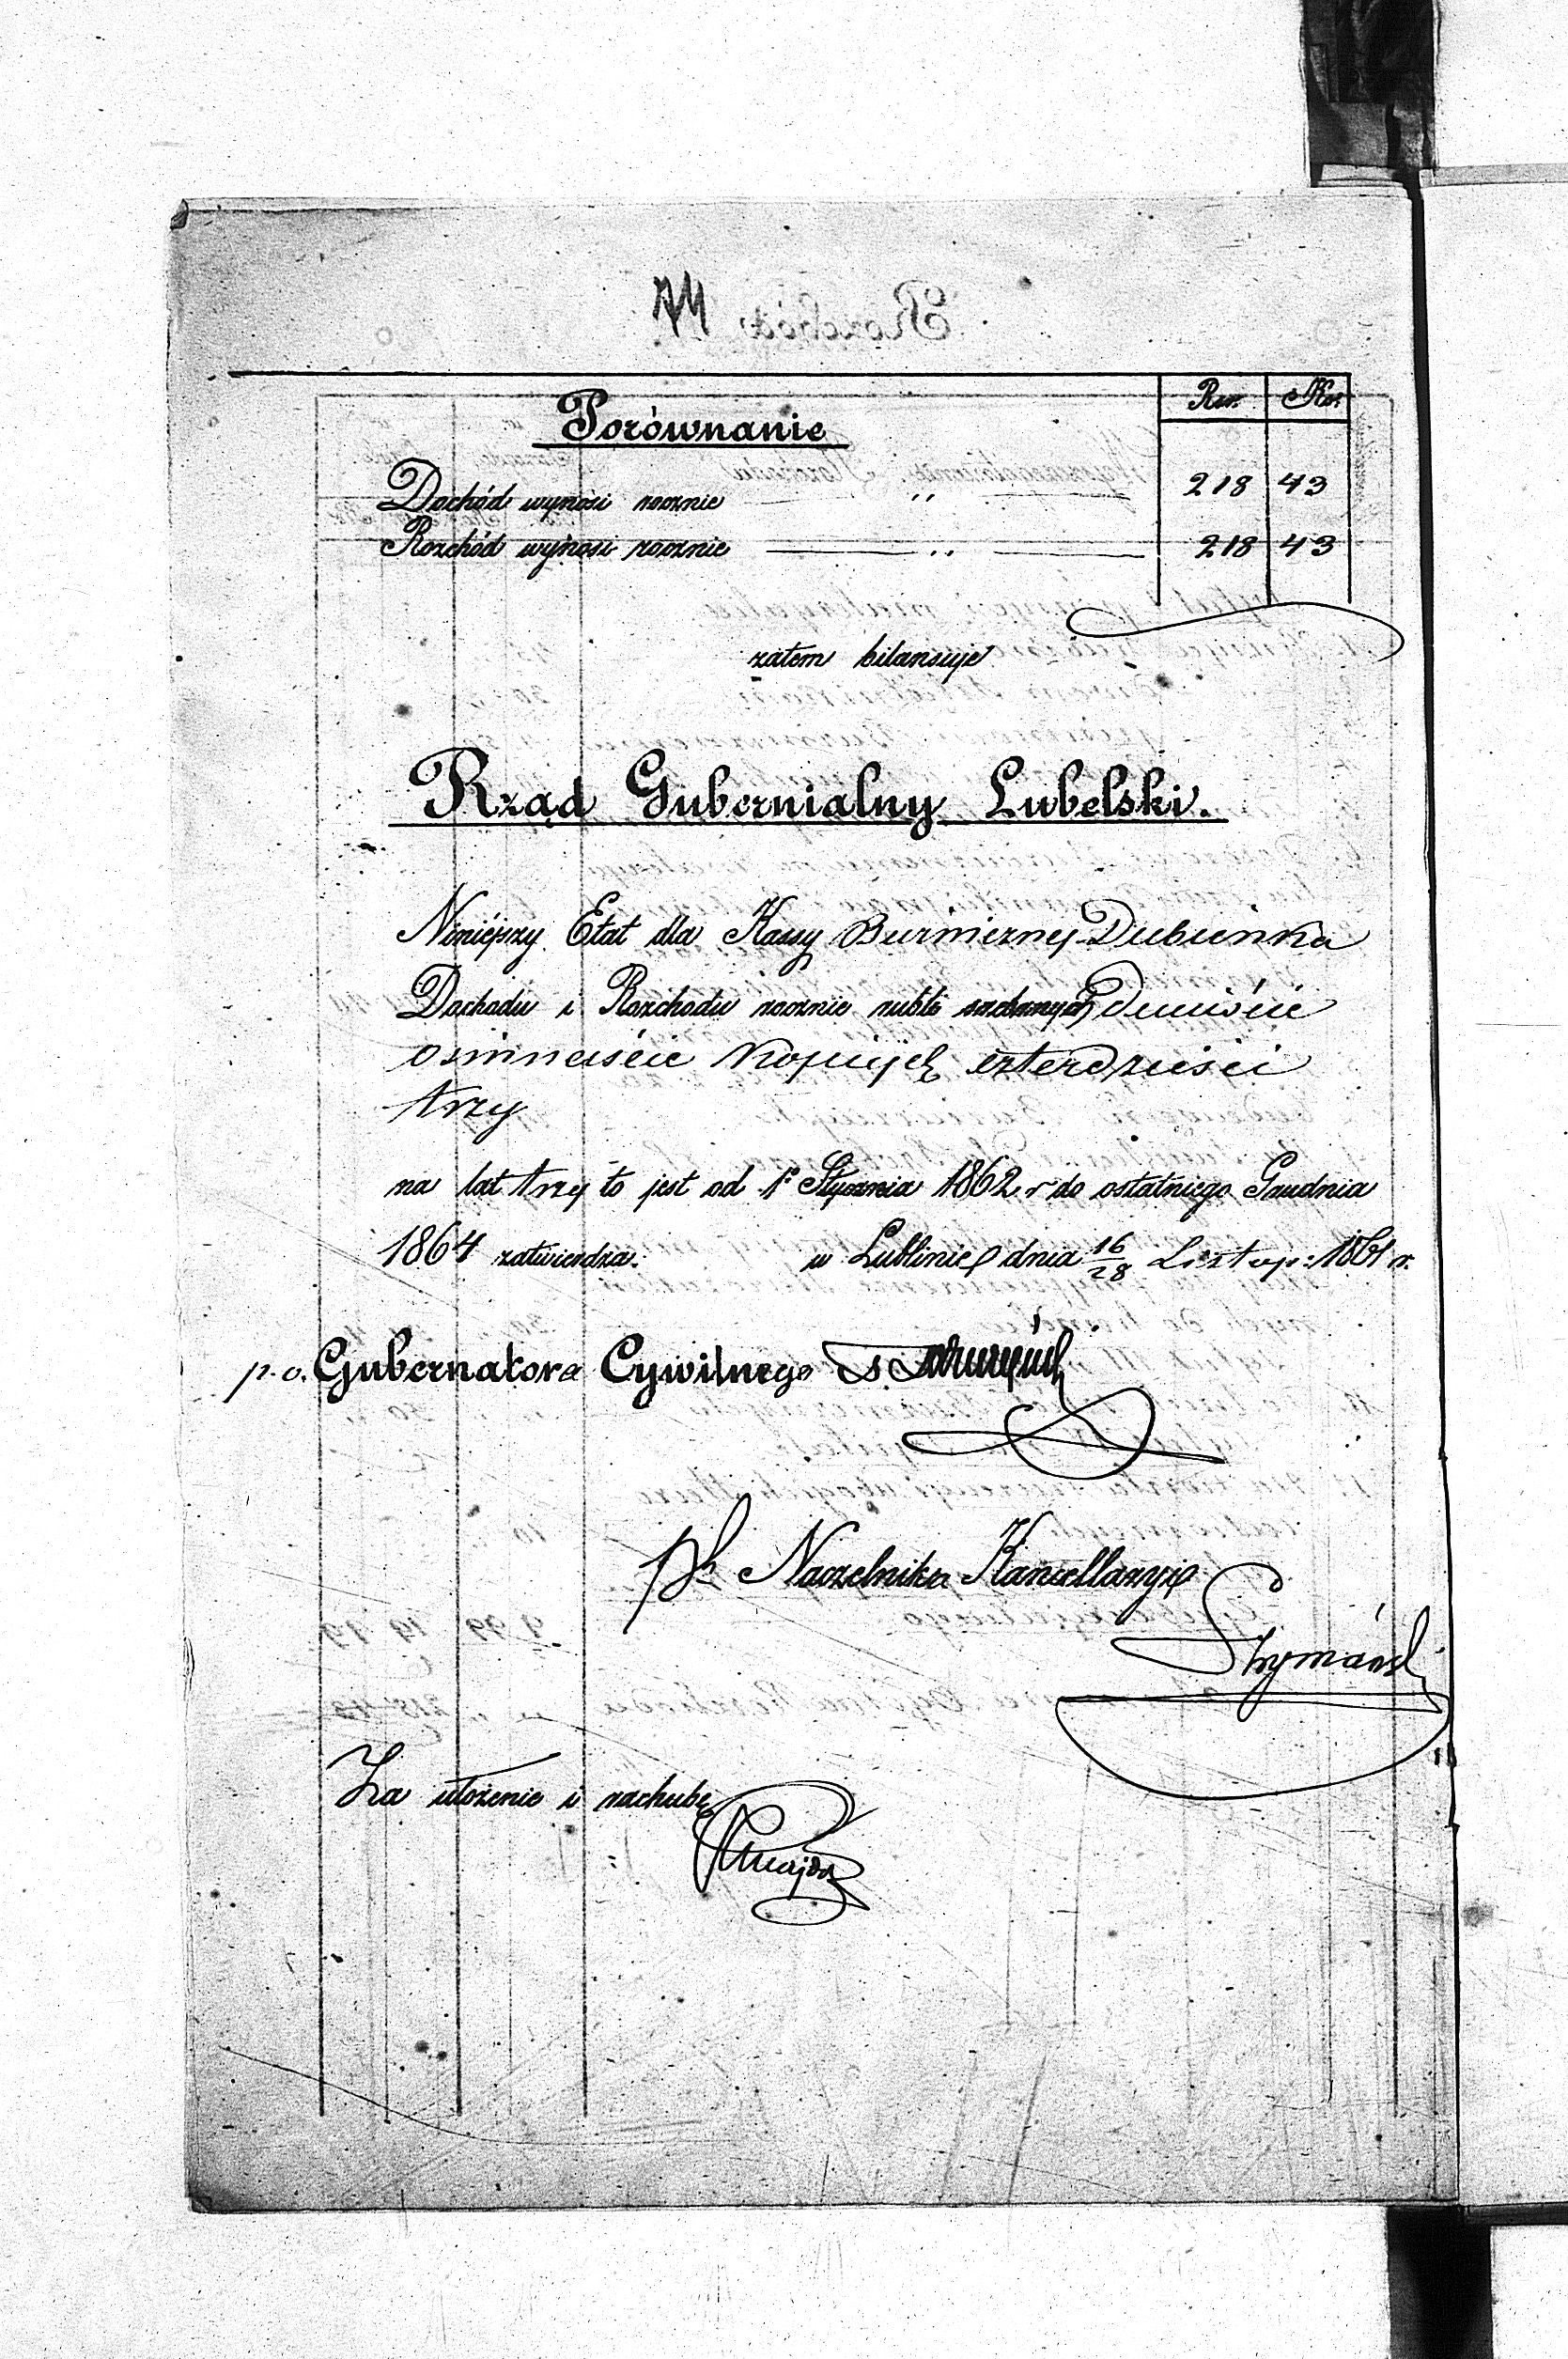 Porównanie
Rsr. Ko.
Dochód wynosi rocznie „ 218 43
Rozchód wynosi rocznie „ 218 43
zatem bilansuje
Rząd Gubernialny Lubelski.
Niniéjszy Etat dla Kassy Bużnicznej Dubienka
Dochodu i Rozchodu rocznie rubli srebrnych Dwieście
ośmnaście Kopiejek czterdzieści
trzy
na lat trzy to jest od 1° Stycznia 1862 r do ostatniego Grudnia
1864 zatwierdza. w Lublinie dnia 16/28 Listop: 1861 r.
p.o. Gubernatora Cywilnego
Naczelnika Kancellaryi
Za ułożenie i rachubę